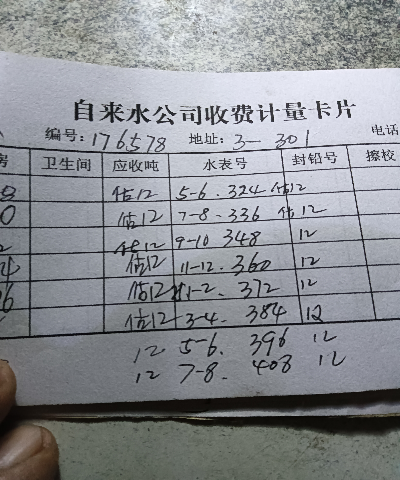 自来水公司收费计量卡片
编号: 176578 地址: 3-301 电话
房 卫生间 应收吨 水表号 封铅号 擦校
估12 5-6. 324 估12
0 估12 7-8. 336 估12
估12 9-10 348 12
估12 11-12. 360 12
估12 1-2. 372 12
估12 3-4. 384 12
12 5-6. 396 12
12 7-8. 408 12